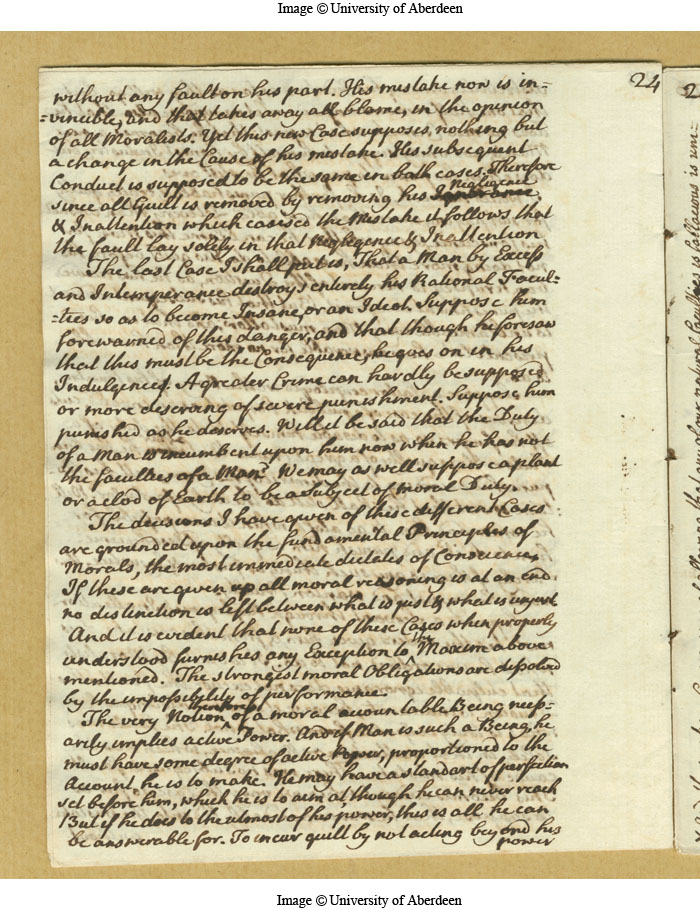 Image © University of Aberdeen
24
without any fault on his part. His mistake now is in=
=vincible, and that takes away all blame, in the opinion
of all Moralists. Yet this new Case supposes nothing but
a change in the Cause of his mistake. His subsequent
Conduct is supposed to be the same in both cases. Therefore
since all Guilt is removed by removing his Negligence
& Inattention which caused the Mistake it follows that
the fault lay solely in that Negligence & Inattention
The last Case I shall put is, That a Man by Excess
and Intemperance destroys entirely his Rational Facul=
=ties so as to become Insane, or an Ideot. Suppose him
forewarned of this danger, and that though he foresaw
that this must be the Consequence, he goes on in his
Indulgences. A greater Crime can hardly be supposed
or more deserving of severe punishment. Suppose him
punished as he deserves. Will it be said that the Duty
of a Man is incumbent upon him now when he has not
the faculties of a Man? We may as well suppose a plant
or a clod of Earth to be a Subject of moral Duty.
The decisions I have given of these different Cases
are grounded upon the fundamental Principles of
Morals, the most immediate dictates of Conscience.
If these are given up all moral reasoning is at an end
no distinction is left between what is just & what is unjust
And it is evident that none of these Cases when properly
understood furnishes any Exception to the Maxim above
mentioned. The strongist moral Obligations are dissolved
by the impossibility of performance.
The very Notion therefore of a moral accountable Being neces=
arily implies active Power. And if Man is such a Being, he
must have some degree of active Power, proportioned to the
Account he is to make. He may have a standart of perfection
set before him, which he is to aim at, though he can never reach
But if he does to the utmost of his power, this is all he can
be answerable for. To incur guilt by not acting beyond his
power
Image © University of Aberdeen